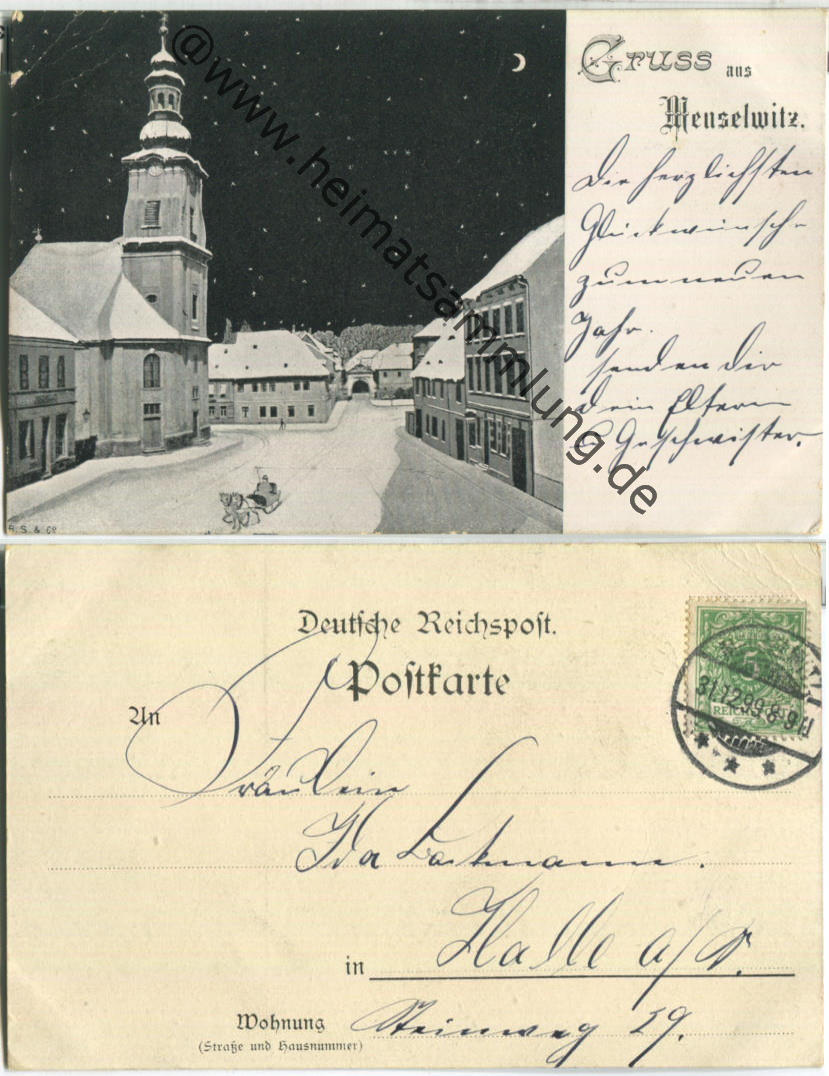 Gruss aus
Meuselwitz.
Die herzlichsten
Glückwünsche
zum neuen
Jahr.
senden dir
dein Eltern
& Geschwister.
R. S. & Co
@www.heimatsammlung.de
Deutsche Reichspost.
Postkarte
An
Fräulein
Ida
in Halle a/S.
Wohnung Steinweg 29.
(Straße und Hausnummer)
31.12.99.8-9N
REICHSPOST